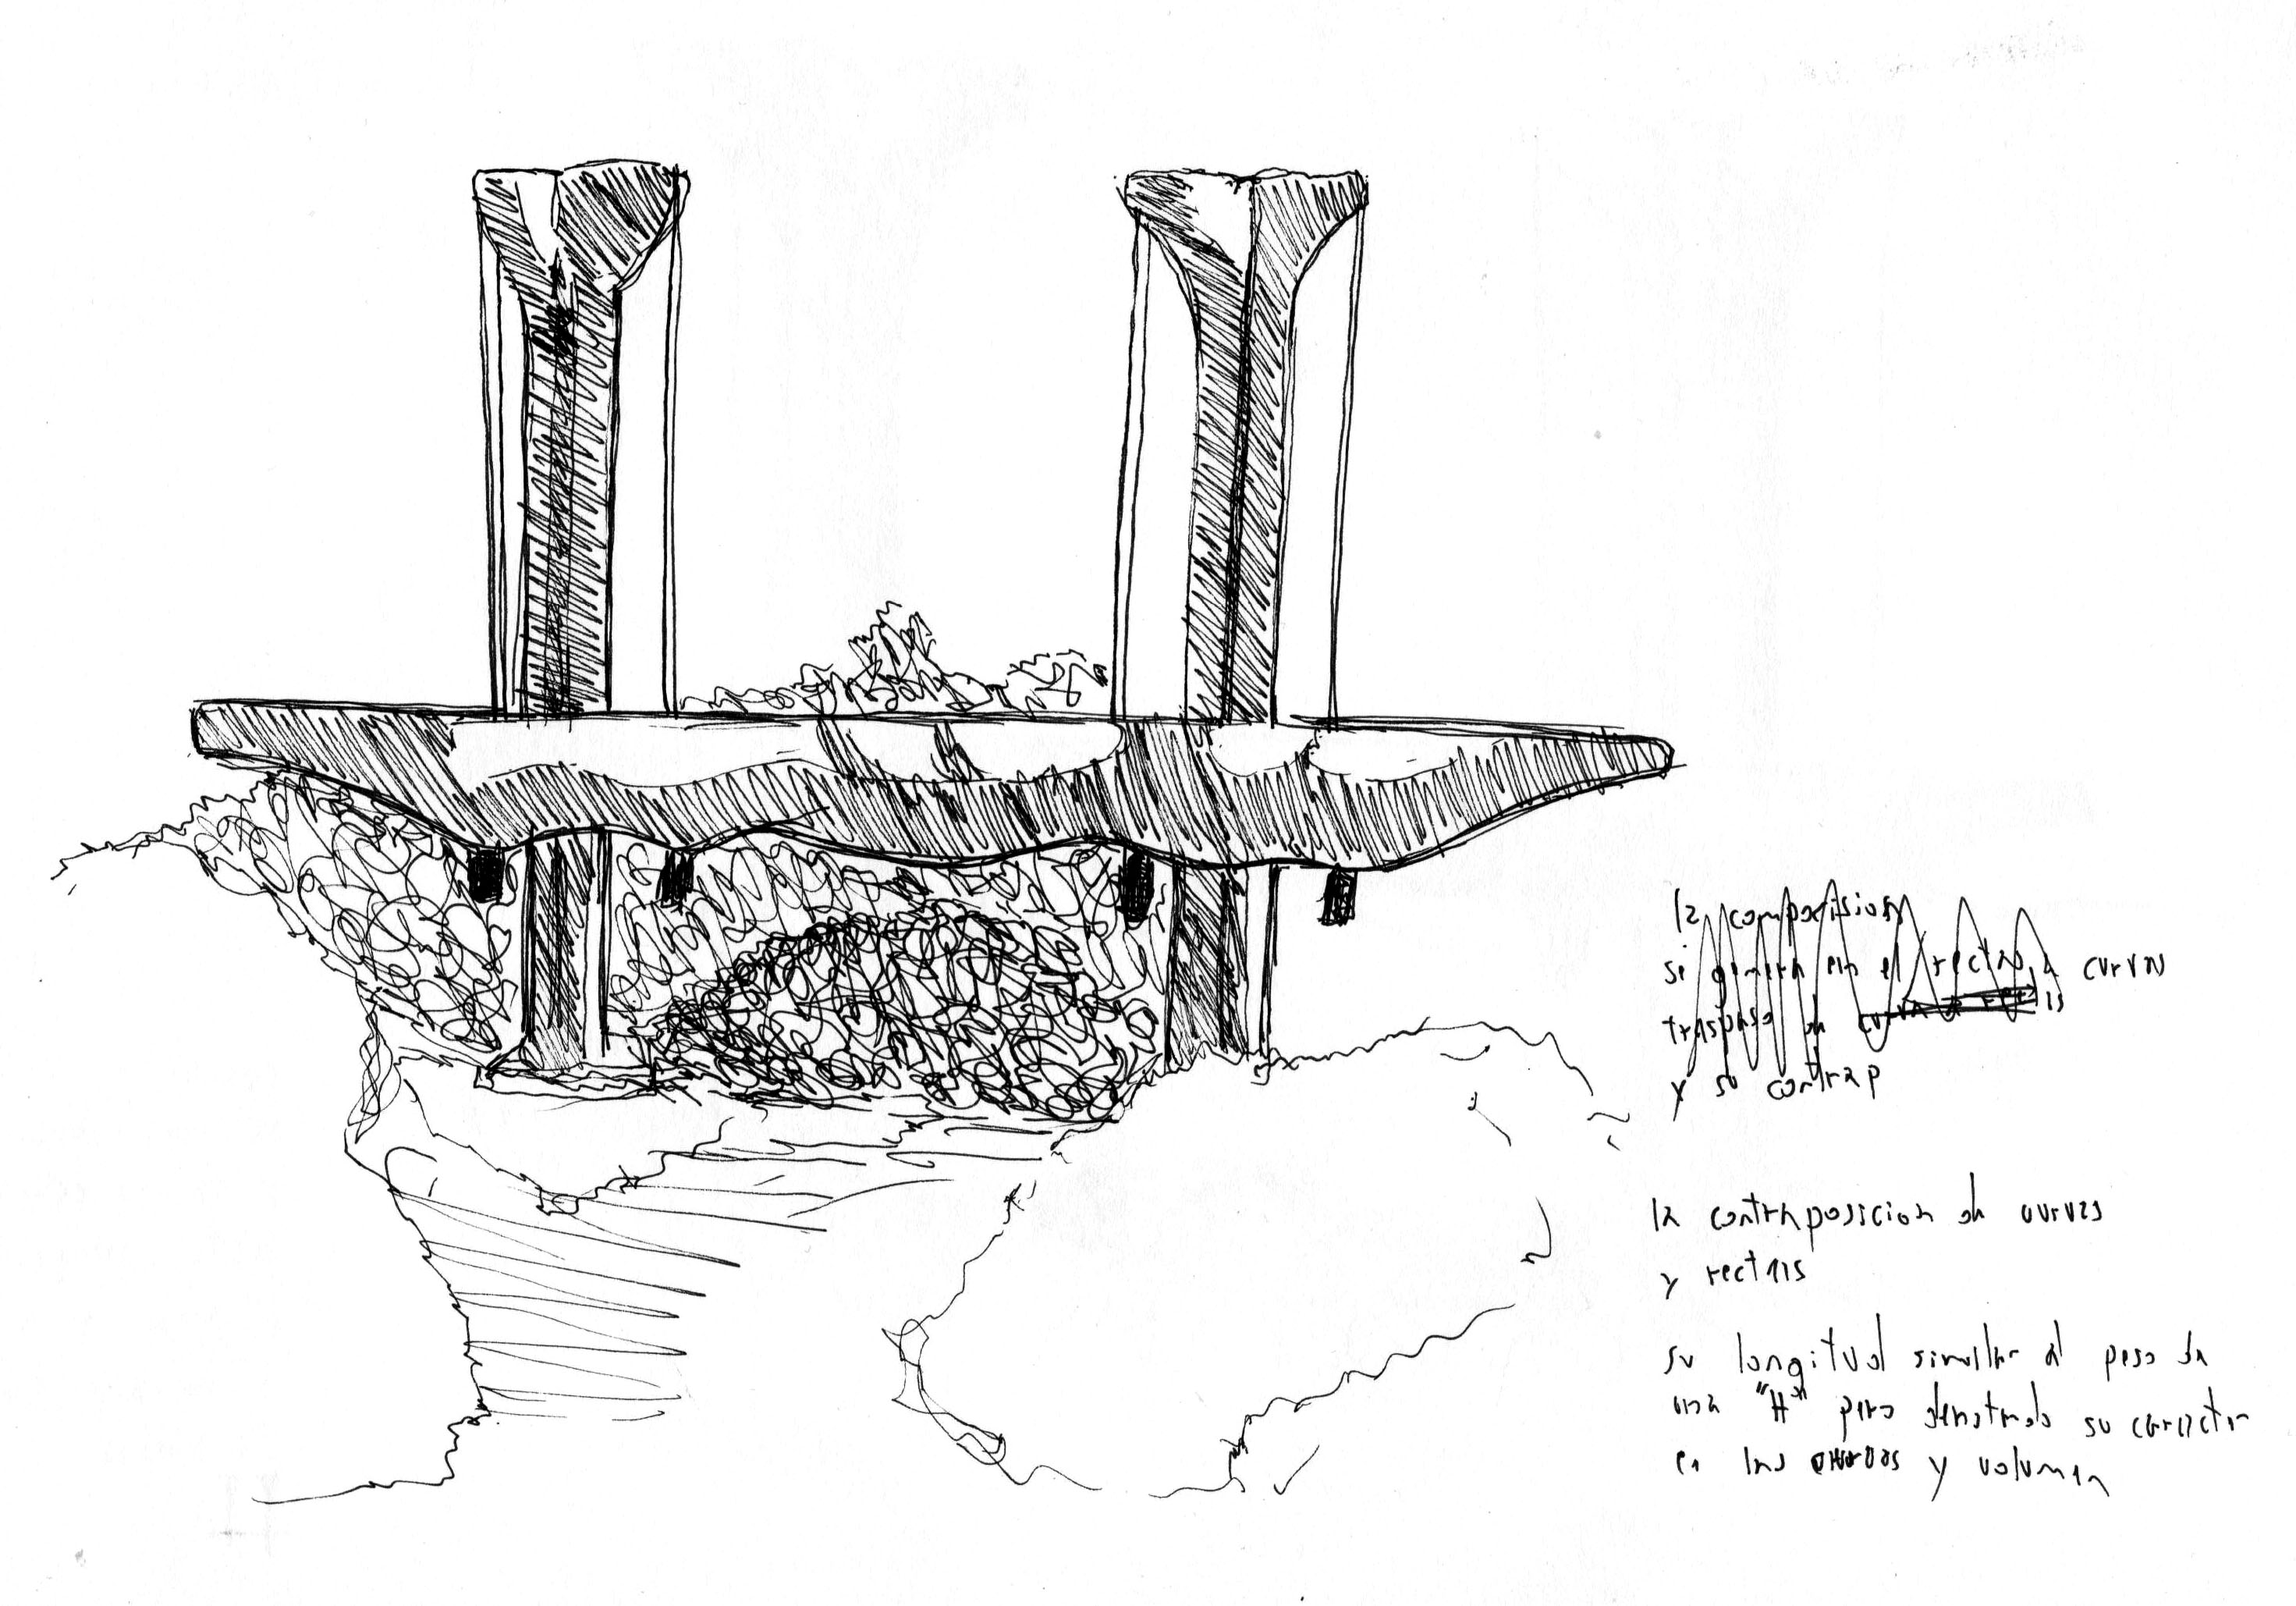 la composision
se genera en el rectas a curvas
traspaso de curva a rectas
y su contrap
la contraposicion de curvas
y rectas
su longitud similar al peso de
una "H" pero denotando su caracter
en las curvas y volumen